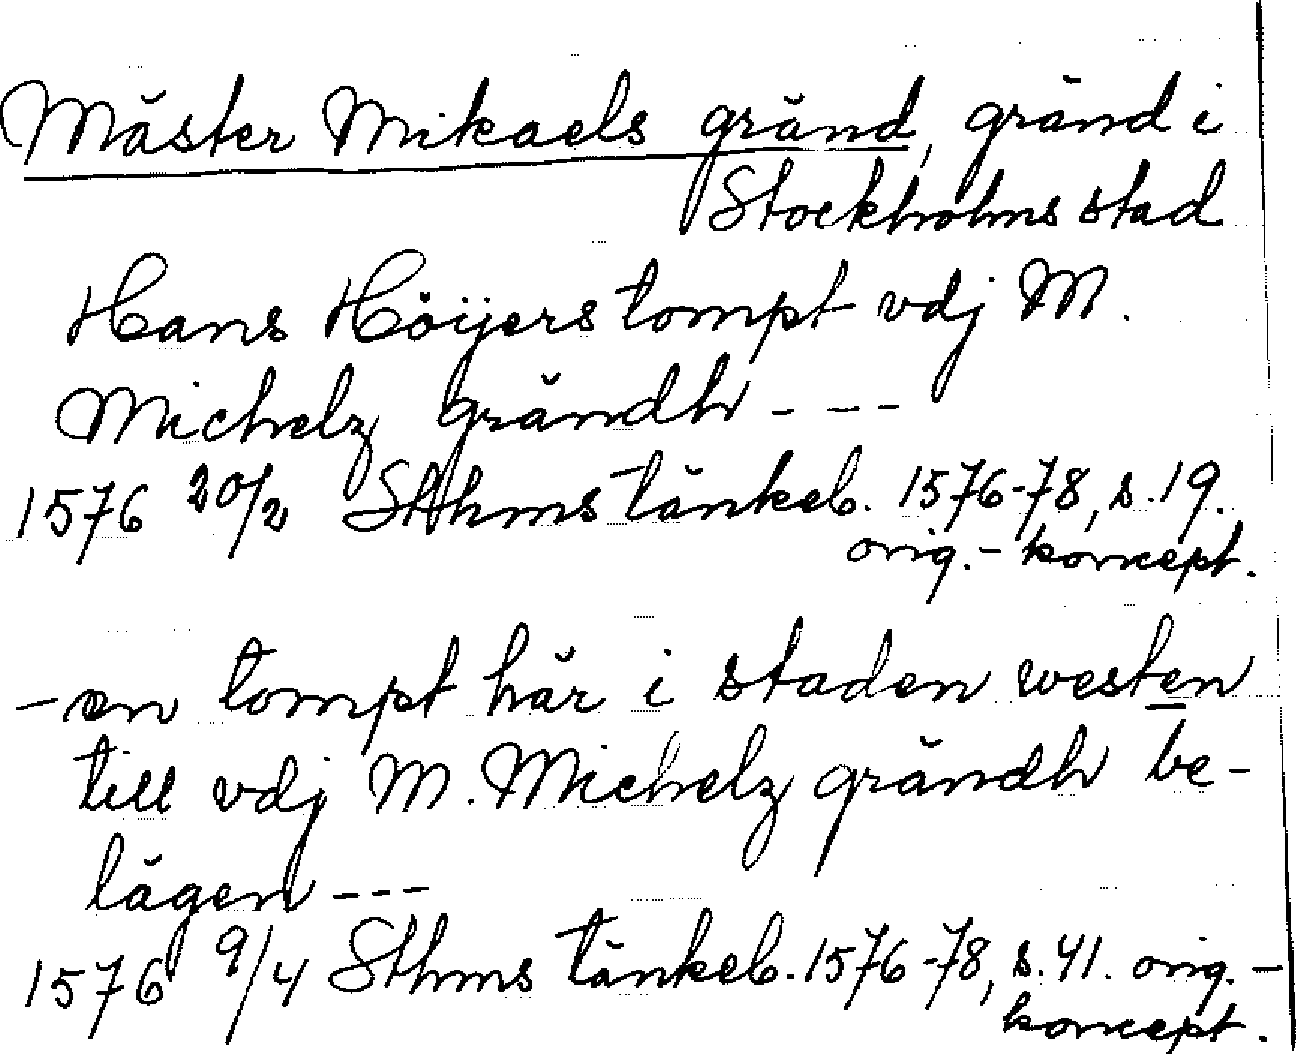 Mäster Mikaels gränd, gränd i
Stockholms stad
Hans Höijers tompt vdj M.
Michelz grändh - - -
1576 20/2 Sthms tänkeb. 1576-78, s. 19.
orig.- koncept.
- en tompt här i staden westen
till vdj M. Michelz grändh be-
lägen - - -
1576 9/4 Sthms tänkeb. 1576-78, s. 41. orig.-
koncept.